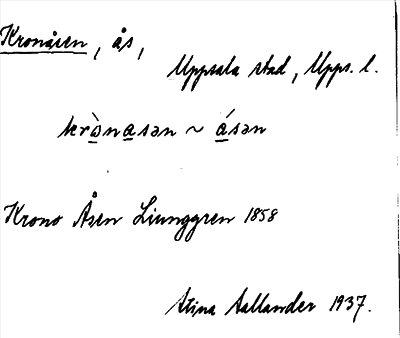 Kronåsen, ås,
Uppsala stad, Upps. l.
krò̱na̱sən ~ á̱sən
Krono Åsen Ljunggren 1858
Stina Aallander 1937.